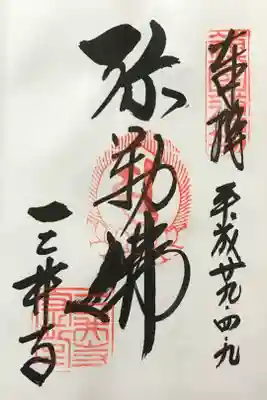 奉拝
平成廿九・四・九
弥勒佛
三井寺